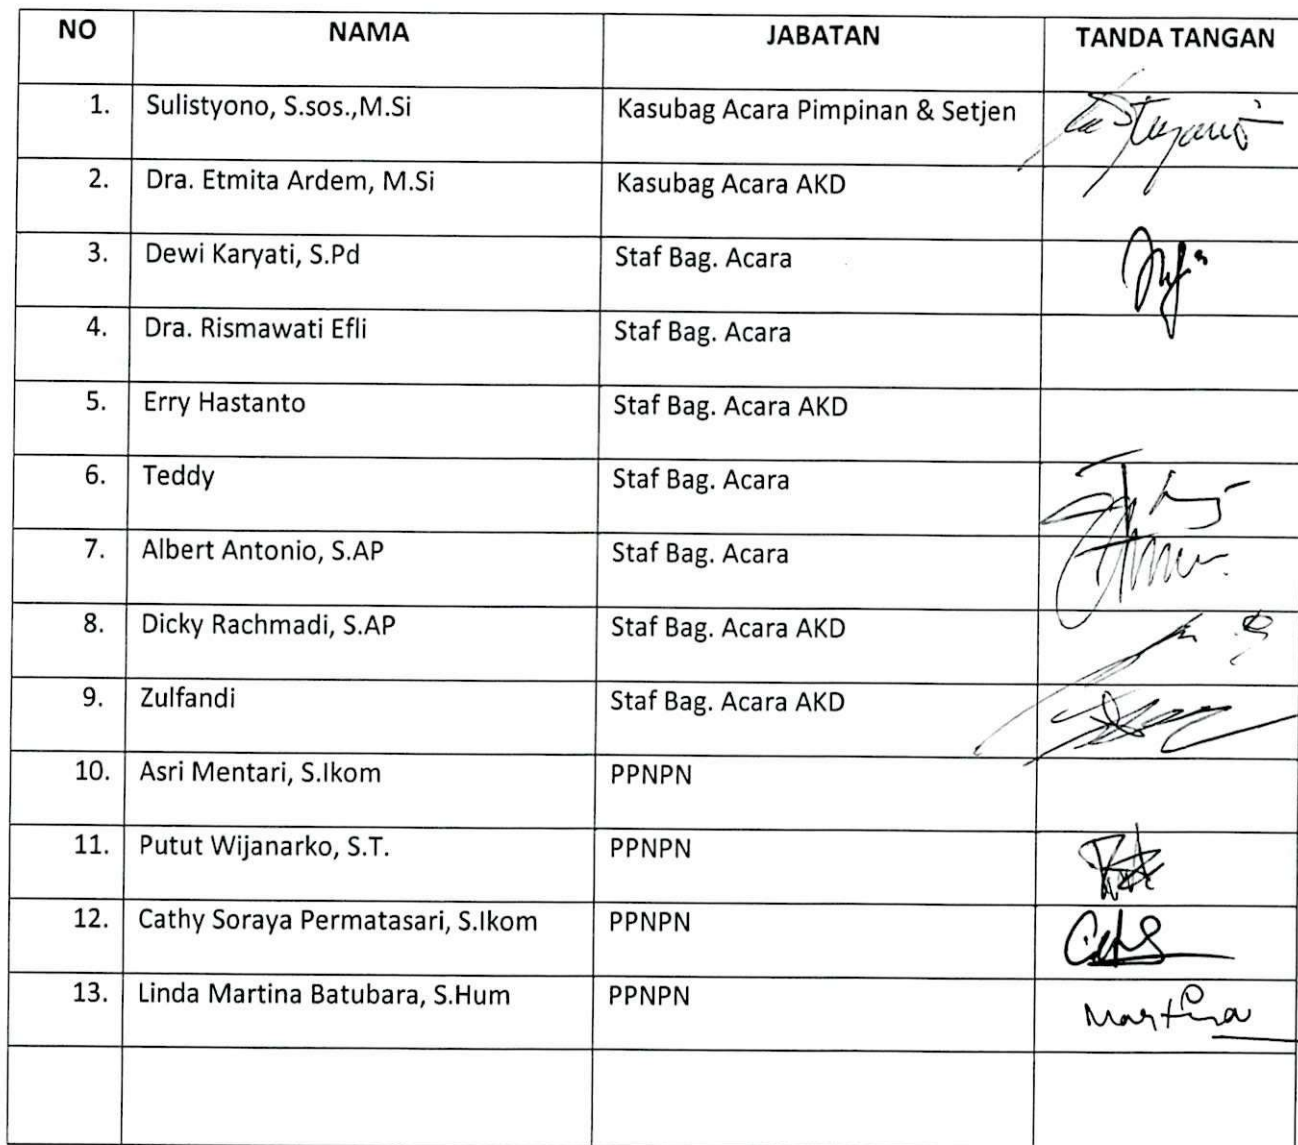 NO NAMA JABATAN TANDA TANGAN
1. Sulistyono, S.sos.,M.Si Kasubag Acara Pimpinan & Setjen
2. Dra. Etmita Ardem, M.Si Kasubag Acara AKD
3. Dewi Karyati, S.Pd Staf Bag. Acara
4. Dra. Rismawati Efli Staf Bag. Acara
5. Erry Hastanto Staf Bag. Acara AKD
6. Teddy Staf Bag. Acara
7. Albert Antonio, S.AP Staf Bag. Acara
8. Dicky Rachmadi, S.AP Staf Bag. Acara AKD
9. Zulfandi Staf Bag. Acara AKD
10. Asri Mentari, S.Ikom PPNPN
11. Putut Wijanarko, S.T. PPNPN
12. Cathy Soraya Permatasari, S.Ikom PPNPN
13. Linda Martina Batubara, S.Hum PPNPN Martina